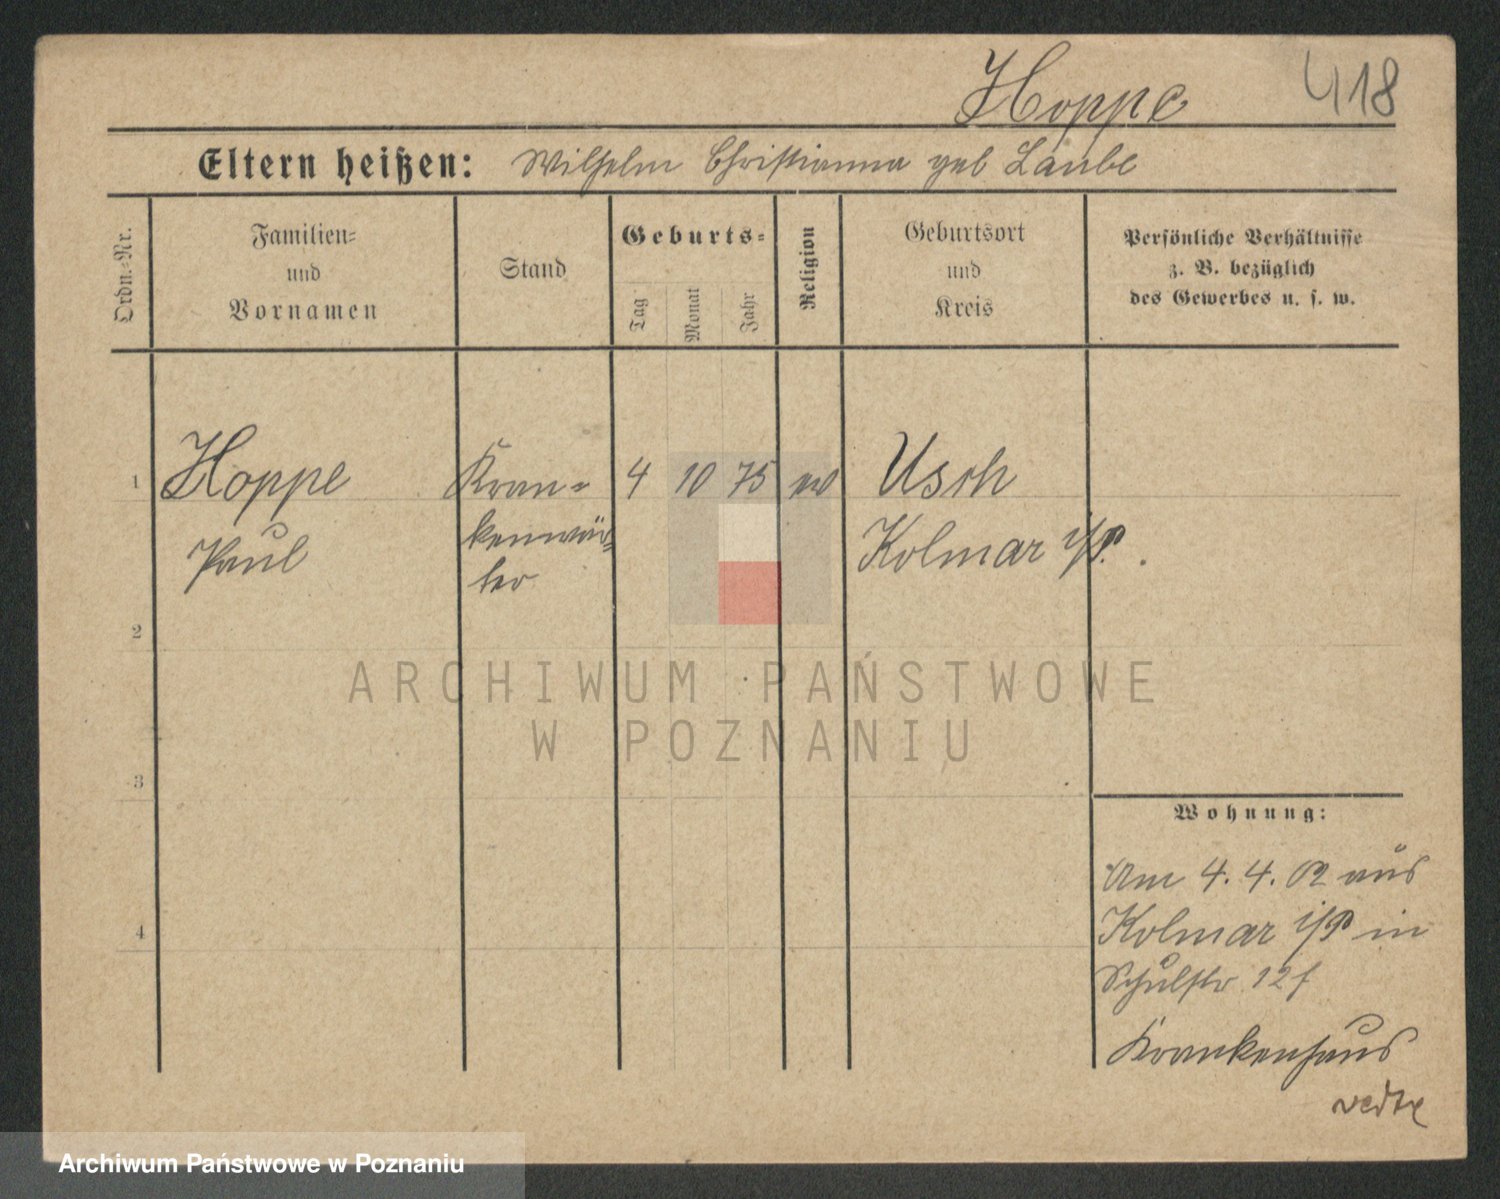 Hoppe 418
Eltern heißen: Wilhelm Christianna geb Laube
Ordn.-Nr.
Familien-
und
Vornamen
Stand
Geburts-
Tag
Monat
Jahr
Religion
Geburtsort
und
Kreis
Persönliche Verhältnisse
z. B. bezüglich
des Gewerbes u. s. w.
1 Hoppe Kran- 4 10 75 ev Usch
Paul kenwär- Kolmar i/P.
ter
2
3
4
Wohnung:
Am 4. 4. 02 aus
Kolmar i/P in
Schulstr 12
Krankenhaus
ARCHIWUM PAŃSTWOWE
W POZNANIU
Archiwum Państwowe w Poznaniu